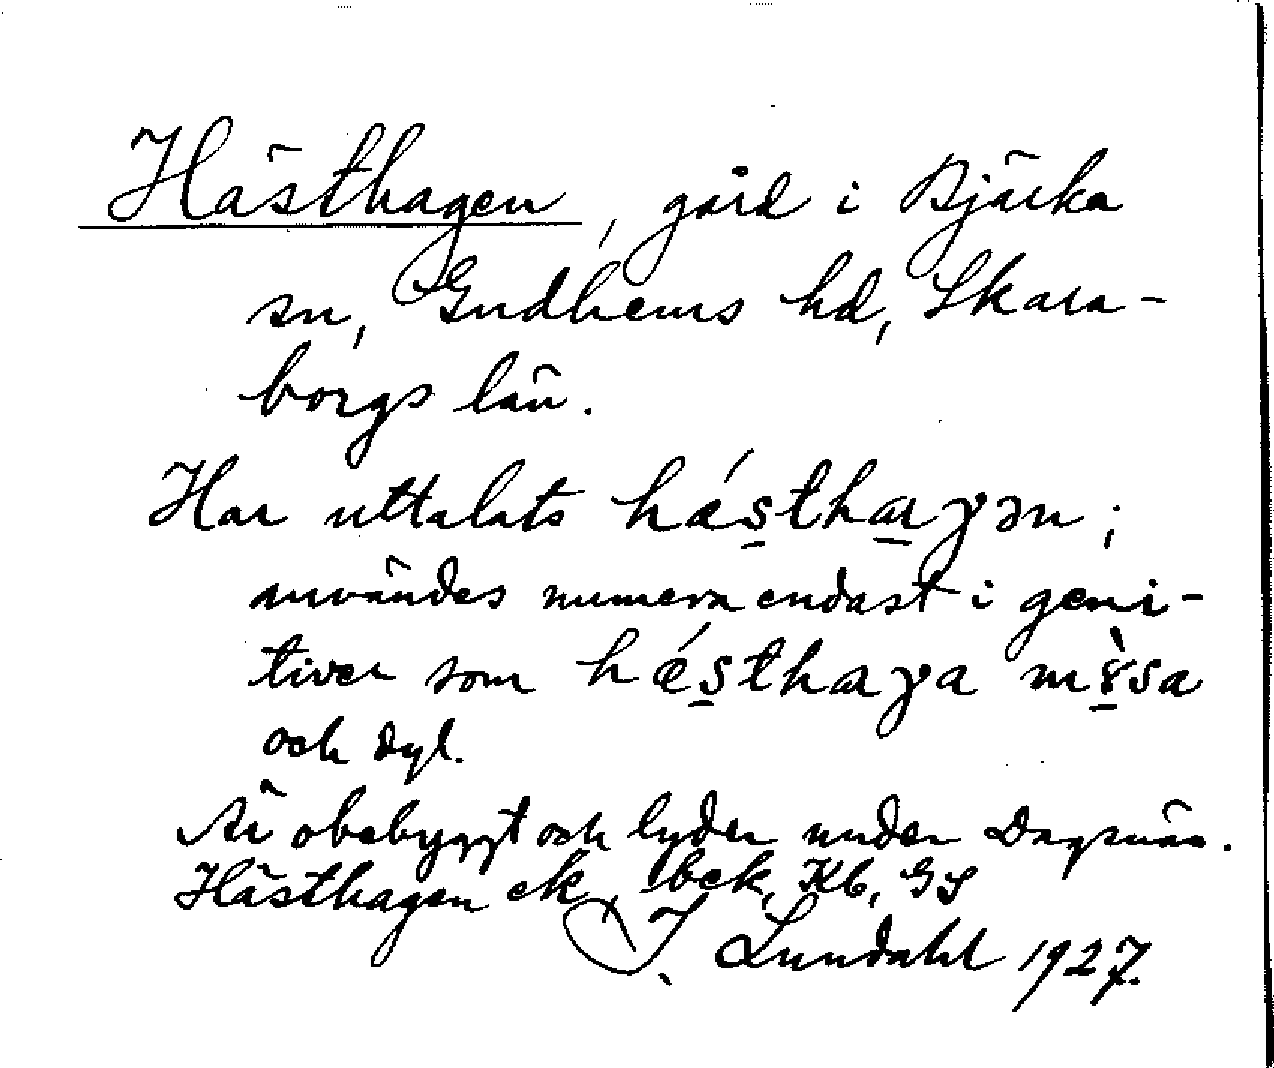 Hästhagen, gård i Bjärka
sn, Gudhems hd, Skara-
borgs län.
Har uttalats hǽs̱tha̱ɣən;
användes numera endast i geni-
tiver som hǽs̱thaɣa
och dyl.
Är obebyggt och lyder under Dagsnäs.
Hästhagen ek, bek, Kb, GS
I. Lundahl 1927.